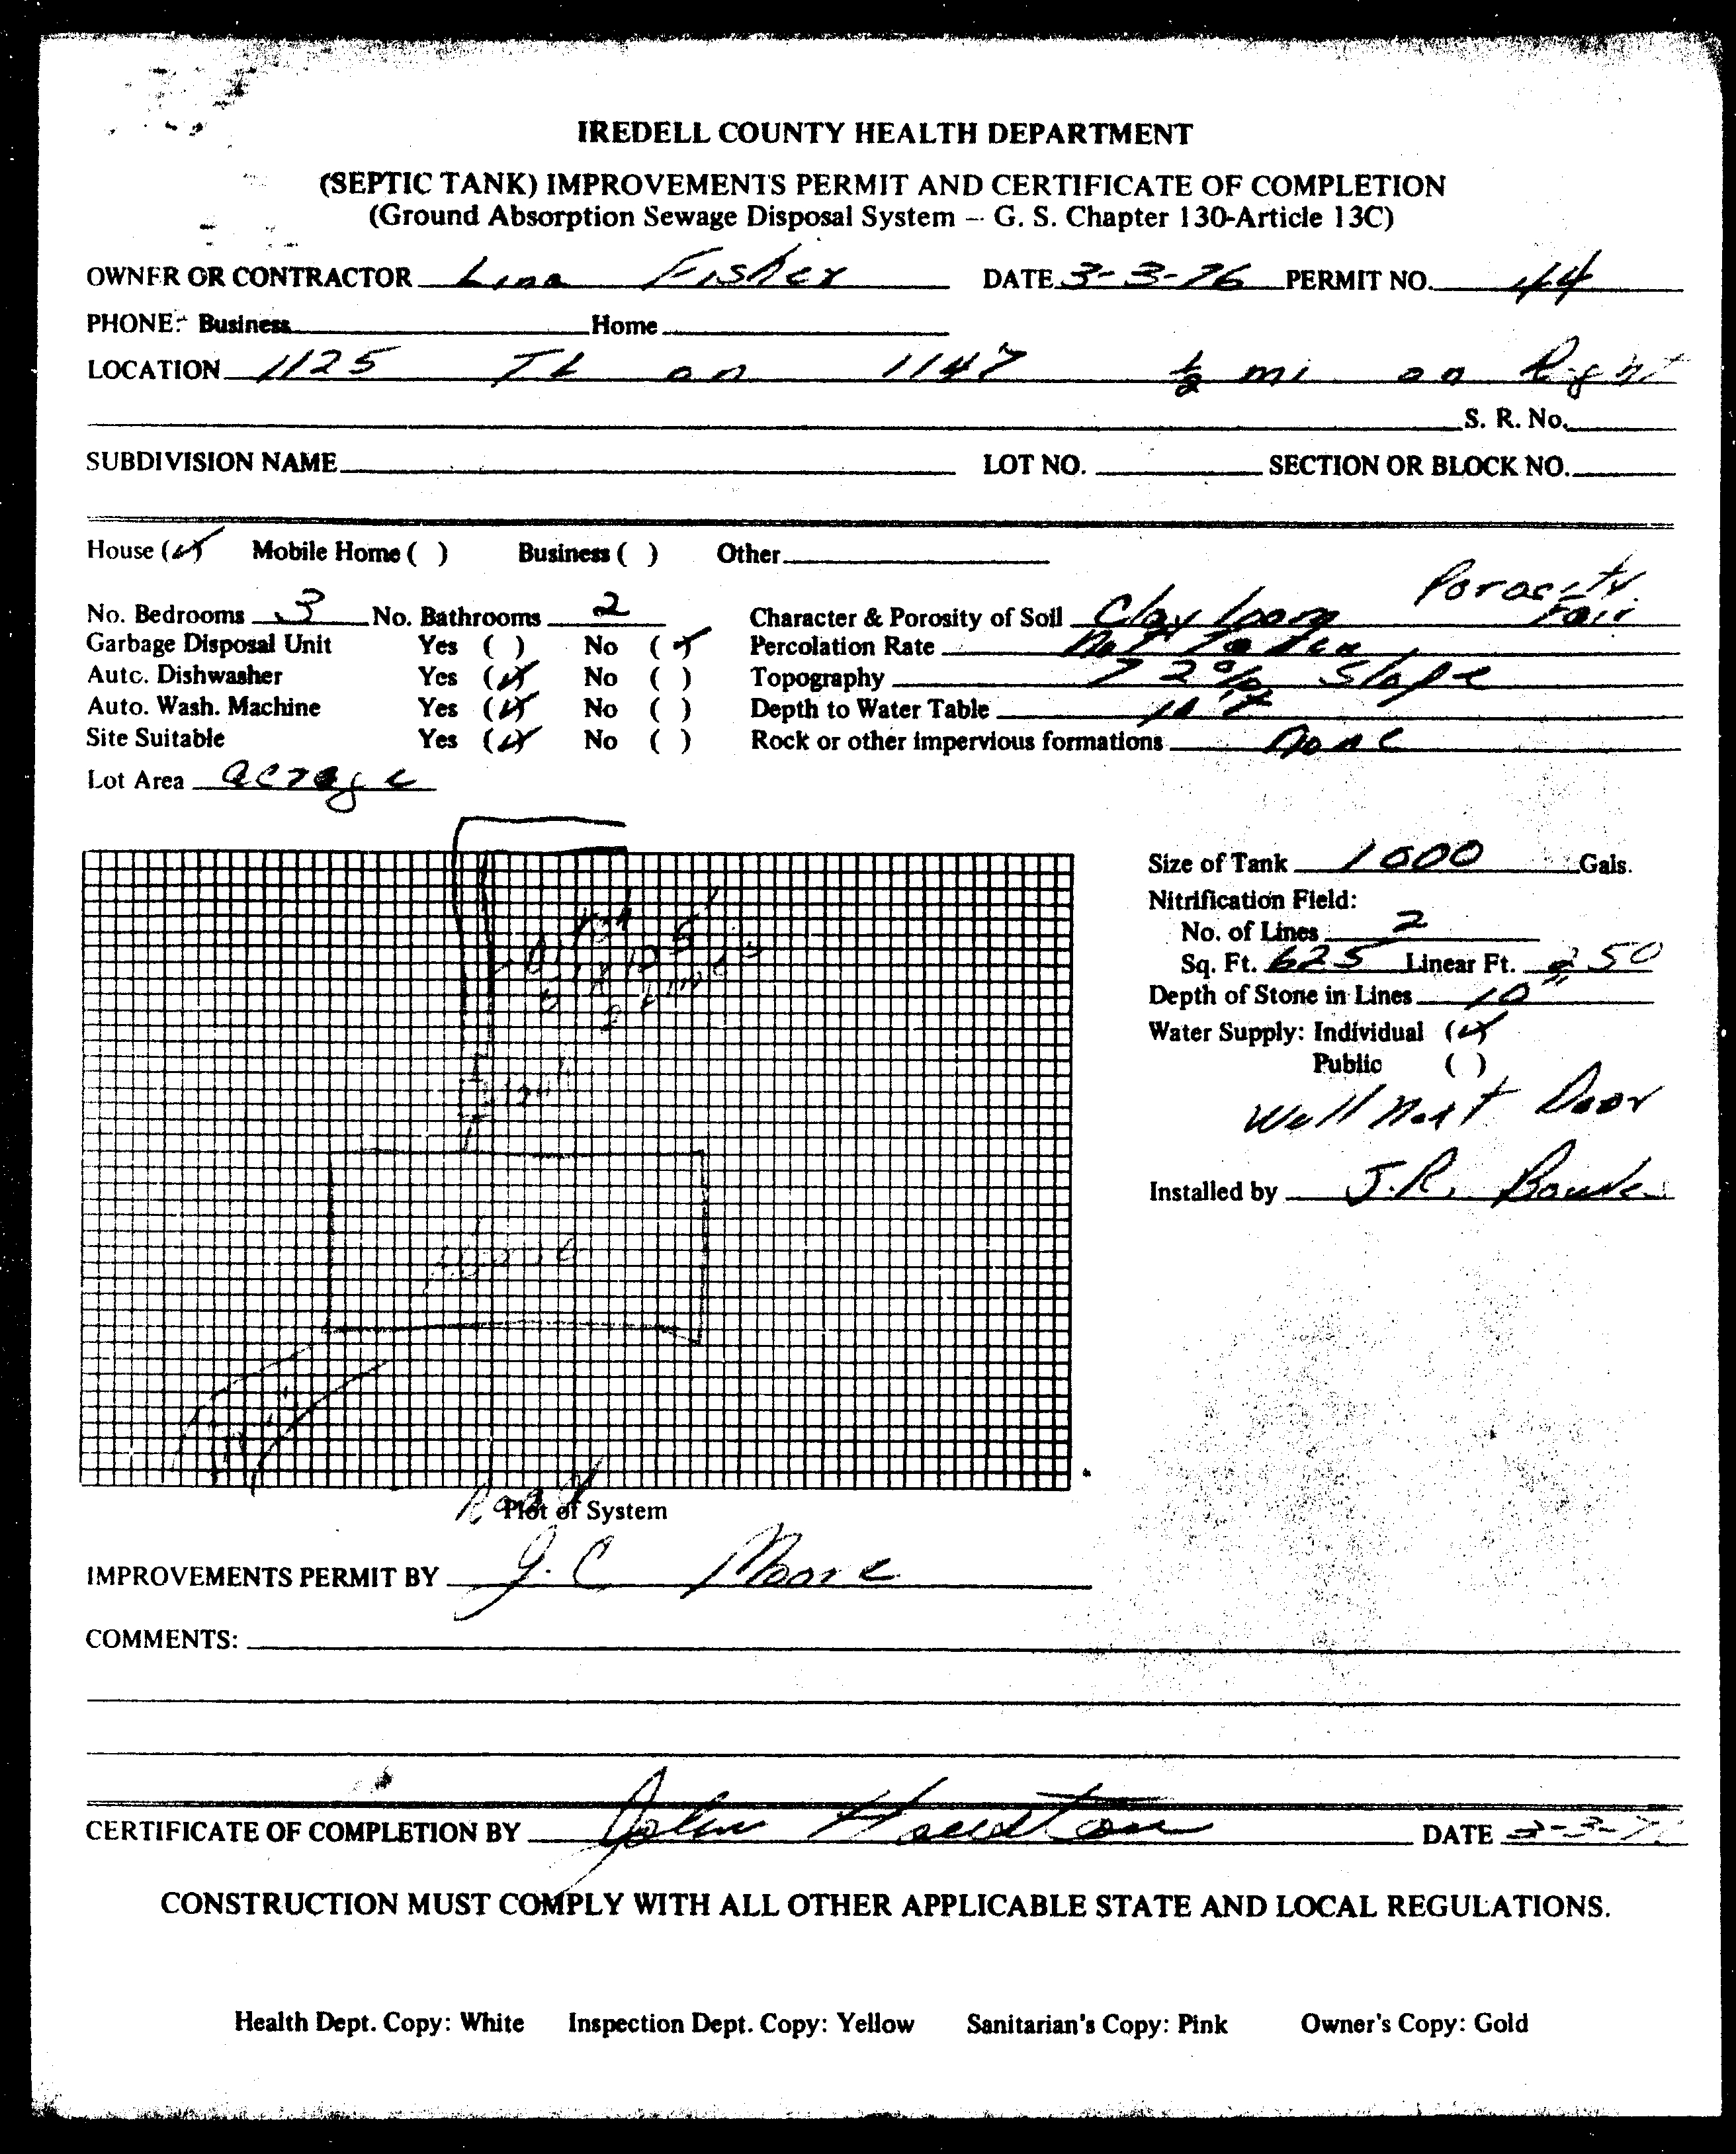 IREDELL COUNTY HEALTH DEPARTMENT
(SEPTIC TANK) IMPROVEMENTS PERMIT AND CERTIFICATE OF COMPLETION
(Ground Absorption Sewage Disposal System – G. S. Chapter 130-Article 13C)
OWNER OR CONTRACTOR Lina Fisher DATE 3-3-76 PERMIT NO. 44
PHONE: Business Home
LOCATION 1125 TL on 1147 ½ mi on Right
S. R. No.
SUBDIVISION NAME LOT NO. SECTION OR BLOCK NO.
House (✓) Mobile Home ( ) Business ( ) Other
No. Bedrooms 3 No. Bathrooms 2 Character & Porosity of Soil Clay loam Porosity Fair
Garbage Disposal Unit Yes ( ) No (✓) Percolation Rate Not Taken
Auto. Dishwasher Yes (✓) No ( ) Topography 2% Slope
Auto. Wash. Machine Yes (✓) No ( ) Depth to Water Table
Site Suitable Yes (✓) No ( ) Rock or other impervious formations none
Lot Area acrage
Size of Tank 1000 Gals.
Nitrification Field:
No. of Lines 2
Sq. Ft. 625 Linear Ft. 250
Depth of Stone in Lines 10"
Water Supply: Individual (✓)
Public ( )
Well next Door
Installed by J.R.
2 Lines
House
Road
Plot of System
IMPROVEMENTS PERMIT BY J. C Moore
COMMENTS:
CERTIFICATE OF COMPLETION BY John DATE 3-3-76
CONSTRUCTION MUST COMPLY WITH ALL OTHER APPLICABLE STATE AND LOCAL REGULATIONS.
Health Dept. Copy: White Inspection Dept. Copy: Yellow Sanitarian's Copy: Pink Owner's Copy: Gold